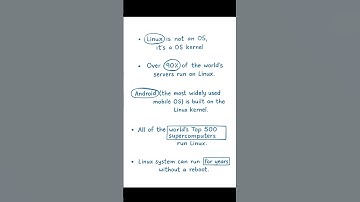 • Linux is not an OS,
it's a OS kernel
• Over 90% of the world's
servers run on Linux.
Android (the most widely used
mobile OS) is built on the
Linux kernel.
• All of the world's Top 500
supercomputers
run Linux.
• Linux system can run for years
without a reboot.